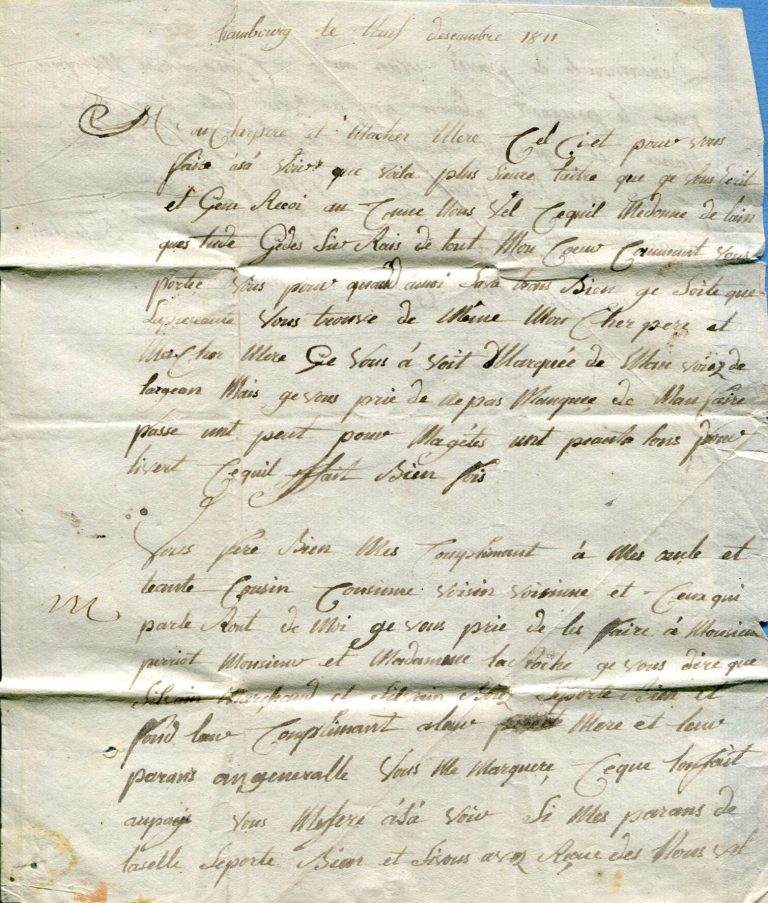 hambourg le Neuf descambre 1811
Mon Cherpere et Macher Mere Cet Ci et pour vous
faire àsà Voir que voila plus sieure laitre que ge vous
et Gene Recoi au Cune Nous Vel Cequil Medonne de lain
ques tude Gedes Sir Rais de tout Mon Coeur Comment vous
portée Vous pour quand à moi Sava trais Bien ge Soite que
vous trouve de Même Mon Cher pere et
Macher Mere Ge Vous à voit Marquée de Man voiez de
largean Mais ge vous prie de ne pas Manquee de Man faire
passe unt peut pour Magetes unt pantalons pour
livert Cequil ffait Bien fois
Vous feré Bien Mes Complimant à Mes oncle et
teante Cousin Cousinne voisin voisinne et Ceux qui
parle Ront de Moi ge vous prie de les faire à Monsieu
perriot Monsieur et Madamme laRoche ge vous dire que
Silvain Marchand et Silvain Seporte Bien et
fond leur Complimant aleur Mere et leur
parans angeneralle Vous Me Marquere Ceque lonfait
aupaiy vous Mefere àsà voir Si Mes parans de
laselle Seporte Bien et Sivous avez Reçue des Nous vel